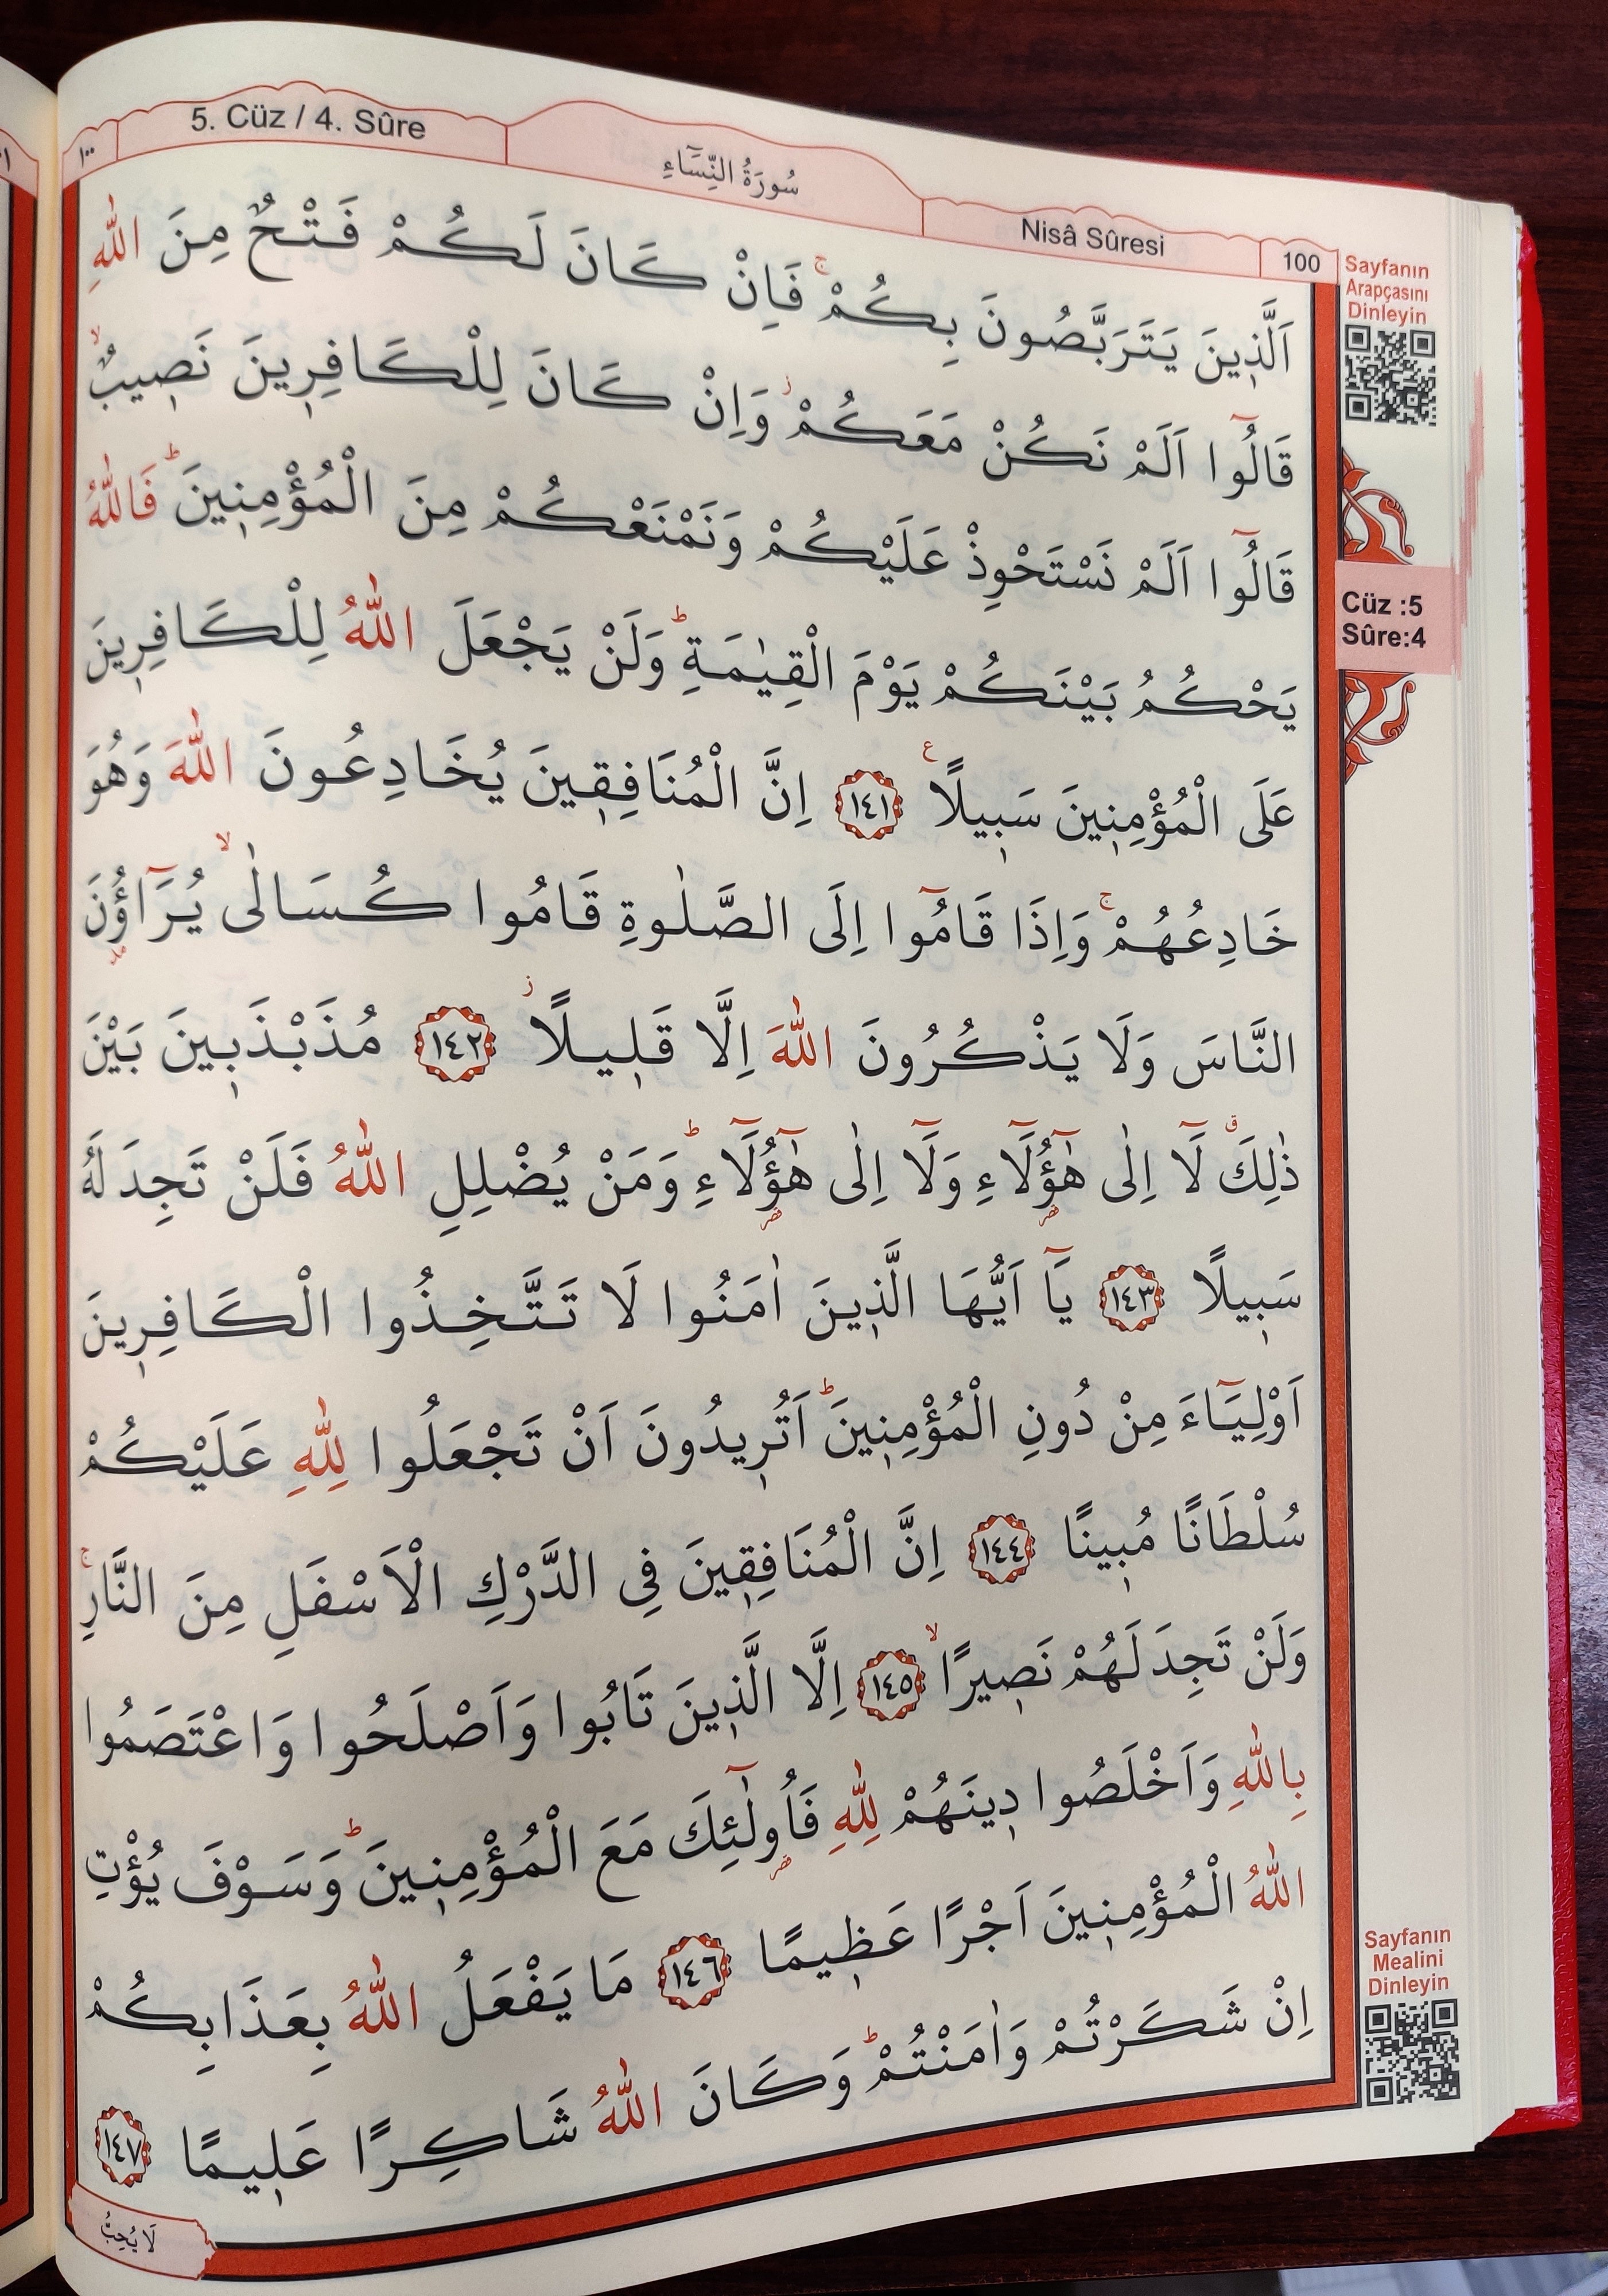 ١٠٠
5. Cüz / 4. Sûre
سُورَةُ النِّسَٓاءِ
Nisâ Sûresi
100
اَلَّذٖينَ يَتَرَبَّصُونَ بِكُمْۚ فَاِنْ كَانَ لَكُمْ فَتْحٌ مِنَ اللّٰهِ
قَالُٓوا اَلَمْ نَكُنْ مَعَكُمْؗ وَاِنْ كَانَ لِلْكَافِرٖينَ نَصٖيبٌۙ
قَالُٓوا اَلَمْ نَسْتَحْوِذْ عَلَيْكُمْ وَنَمْنَعْكُمْ مِنَ الْمُؤْمِنٖينَؕ فَاللّٰهُ
يَحْكُمُ بَيْنَكُمْ يَوْمَ الْقِيٰمَةِؕ وَلَنْ يَجْعَلَ اللّٰهُ لِلْكَافِرٖينَ
عَلَى الْمُؤْمِنٖينَ سَبٖيلًاࣖ ﴿١٤١﴾ اِنَّ الْمُنَافِقٖينَ يُخَادِعُونَ اللّٰهَ وَهُوَ
خَادِعُهُمْۚ وَاِذَا قَامُٓوا اِلَى الصَّلٰوةِ قَامُوا كُسَالٰىۙ يُرَٓاؤُ۫نَ
النَّاسَ وَلَا يَذْكُرُونَ اللّٰهَ اِلَّا قَلٖيلًاؗ ﴿١٤٢﴾ مُذَبْذَبٖينَ بَيْنَ
ذٰلِكَࣗ لَٓا اِلٰى هٰٓؤُ۬لَٓاءِ وَلَٓا اِلٰى هٰٓؤُ۬لَٓاءِؕ وَمَنْ يُضْلِلِ اللّٰهُ فَلَنْ تَجِدَ لَهُ
سَبٖيلًا ﴿١٤٣﴾ يَٓا اَيُّهَا الَّذٖينَ اٰمَنُوا لَا تَتَّخِذُوا الْكَافِرٖينَ
اَوْلِيَٓاءَ مِنْ دُونِ الْمُؤْمِنٖينَؕ اَتُرٖيدُونَ اَنْ تَجْعَلُوا لِلّٰهِ عَلَيْكُمْ
سُلْطَانًا مُبٖينًا ﴿١٤٤﴾ اِنَّ الْمُنَافِقٖينَ فِى الدَّرْكِ الْاَسْفَلِ مِنَ النَّارِۚ
وَلَنْ تَجِدَ لَهُمْ نَصٖيرًاۙ ﴿١٤٥﴾ اِلَّا الَّذٖينَ تَابُوا وَاَصْلَحُوا وَاعْتَصَمُوا
بِاللّٰهِ وَاَخْلَصُوا دٖينَهُمْ لِلّٰهِ فَاُو۬لٰٓئِكَ مَعَ الْمُؤْمِنٖينَؕ وَسَوْفَ يُؤْتِ
اللّٰهُ الْمُؤْمِنٖينَ اَجْرًا عَظٖيمًا ﴿١٤٦﴾ مَا يَفْعَلُ اللّٰهُ بِعَذَابِكُمْ
اِنْ شَكَرْتُمْ وَاٰمَنْتُمْؕ وَكَانَ اللّٰهُ شَاكِرًا عَلٖيمًا ﴿١٤٧﴾
لَا يُحِبُّ
Sayfanın
Arapçasını
Dinleyin
Cüz :5
Sûre:4
Sayfanın
Mealini
Dinleyin